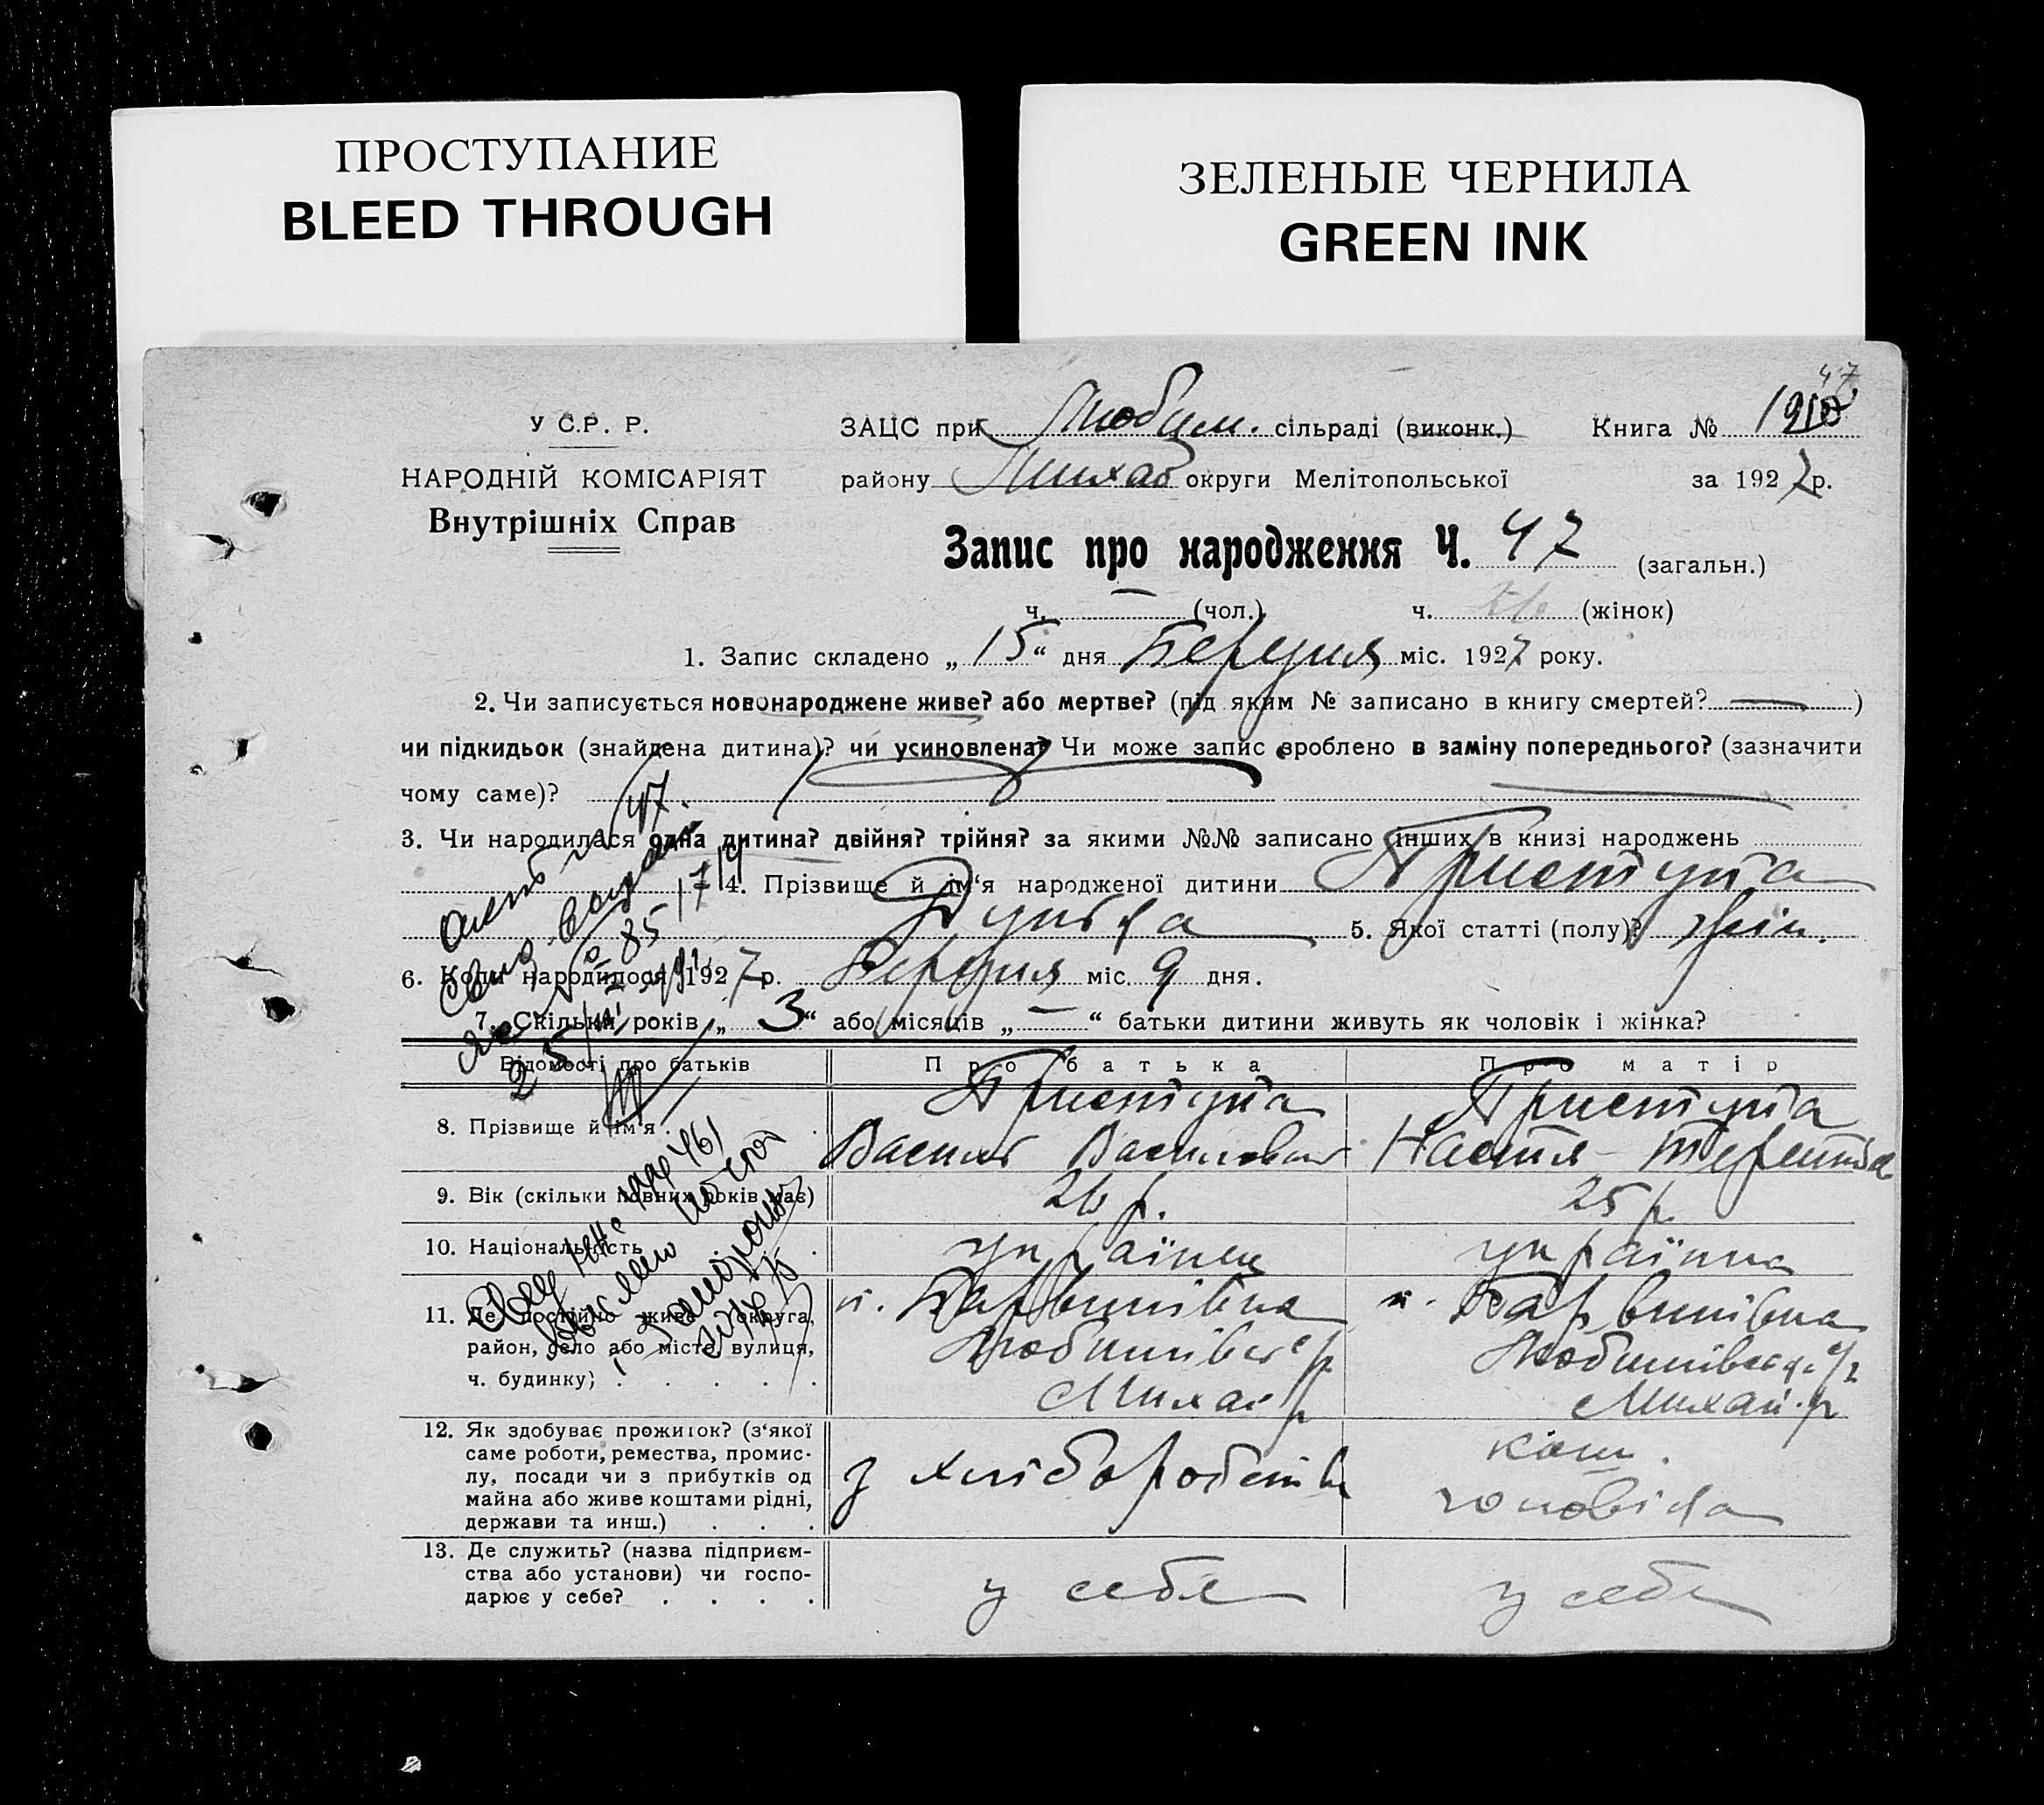 ПРОСТУПАНИЕ
BLEED THROUGH
ЗЕЛЕНЫЕ ЧЕРНИЛА
GREEN INK
47
У С.Р. Р.
НАРОДНІЙ КОМІСАРІЯТ
Внутрішніх Справ
ЗАЦС при Любим. сільраді (виконк.) Книга №
району Михай округи Мелітопольської за 1927 р.
Запис про народження Ч. 47 (загальн.)
ч. — (чол.) ч. (жінок)
1. Запис складено „ 15 “ дня Березня міс. 1927 року.
2. Чи записується новонароджене живе? або мертве? (під яким № записано в книгу смертей? — )
чи підкидьок (знайдена дитина)? чи усиновлена? Чи може запис зроблено в заміну попереднього? (зазначити
чому саме)?
3. Чи народилася одна дитина? двійня? трійня? за якими №№ записано інших в книзі народжень
4. Прізвище й ім‘я народженої дитини Приступа
5. Якої статті (полу)? жін.
6. Коли народилося 1927 р. Березня міс. 9 дня.
7. Скільки років „ 3 “ або місяців „ — “ батьки дитини живуть як чоловік і жінка?
Відомості про батьків Про батька Про матір
8. Прізвище й ім‘я . Приступа Василь Васильович Приступа Настя
9. Вік (скільки повних років має) 26 р. 25 р.
10. Національність . українец українка
11. Де постійно живе (округа,
район, село або місто, вулиця,
ч. будинку) . . . . .
Любимівськ с/р Любимівськ. с/р
Михай р Михай. р
12. Як здобуває прожиток? (з‘якої
саме роботи, ремества, промис-
лу, посади чи з прибутків од
майна або живе коштами рідні,
держави та инш.) . . .
з хліборобства
кош.
чоловіка
13. Де служить? (назва підприєм-
ства або установи) чи госпо-
дарює у себе? . . . .
у себе у себе